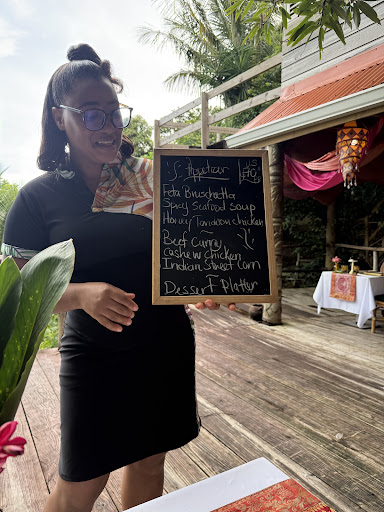 Appetizer
Feta Bruschetta
Spicy Seafood Soup
Honey Tandoori chicken
Beef Curry
Cashew Chicken
Indian Street Corn
Dessert Platter